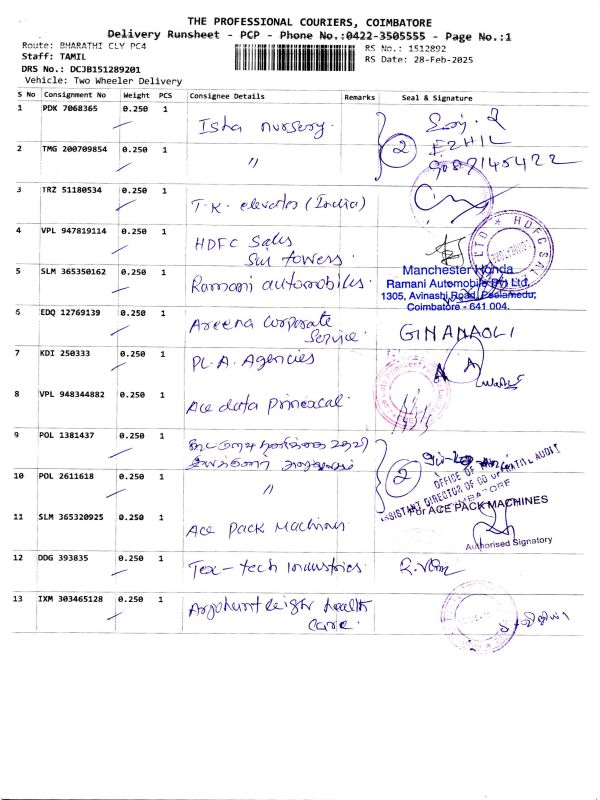 THE PROFESSIONAL COURIERS, COIMBATORE
Delivery Runsheet - PCP - Phone No.:0422-3505555 - Page No.:1
Route: BHARATHI CLY PC4
RS No.: 1512892
Staff: TAMIL
RS Date: 28-Feb-2025
DRS No.: DCJB151289201
Vehicle: Two Wheeler Delivery
S No Consignment No Weight PCS Consignee Details Remarks Seal & Signature
1 PDK 7068365 0.250 1 Isha nursery. 2
EZHIL
2 TMG 200709854 0.250 1 〃 9087145422
3 TRZ 51180534 0.250 1 T.K. elevator (India)
4 VPL 947819114 0.250 1 HDFC Sales
Sur towers.
HDFC SAL
5 SLM 365350162 0.250 1 Ramani automobiles.
Manchester Honda
Ramani Automobile Pvt Ltd,
1305, Avinashi Road, Peelamedu,
Coimbatore - 641 004.
6 EDQ 12769139 0.250 1 Areena Corporate
Service.
7 KDI 250333 0.250 1 PL.A. Agencies
8 VPL 948344882 0.250 1 Ace data
9 POL 1381437 0.250 1
2
OFFICE OF
ASSISTANT DIRECTOR OF CO OPERATIVE AUDIT
COIMBATORE
10 POL 2611618 0.250 1 〃
For ACE PACK MACHINES
11 SLM 365320925 0.250 1 Ace Pack Machines
Authorised Signatory
12 DDG 393835 0.250 1 Tex-tech Industries.
13 IXM 303465128 0.250 1 health
care.